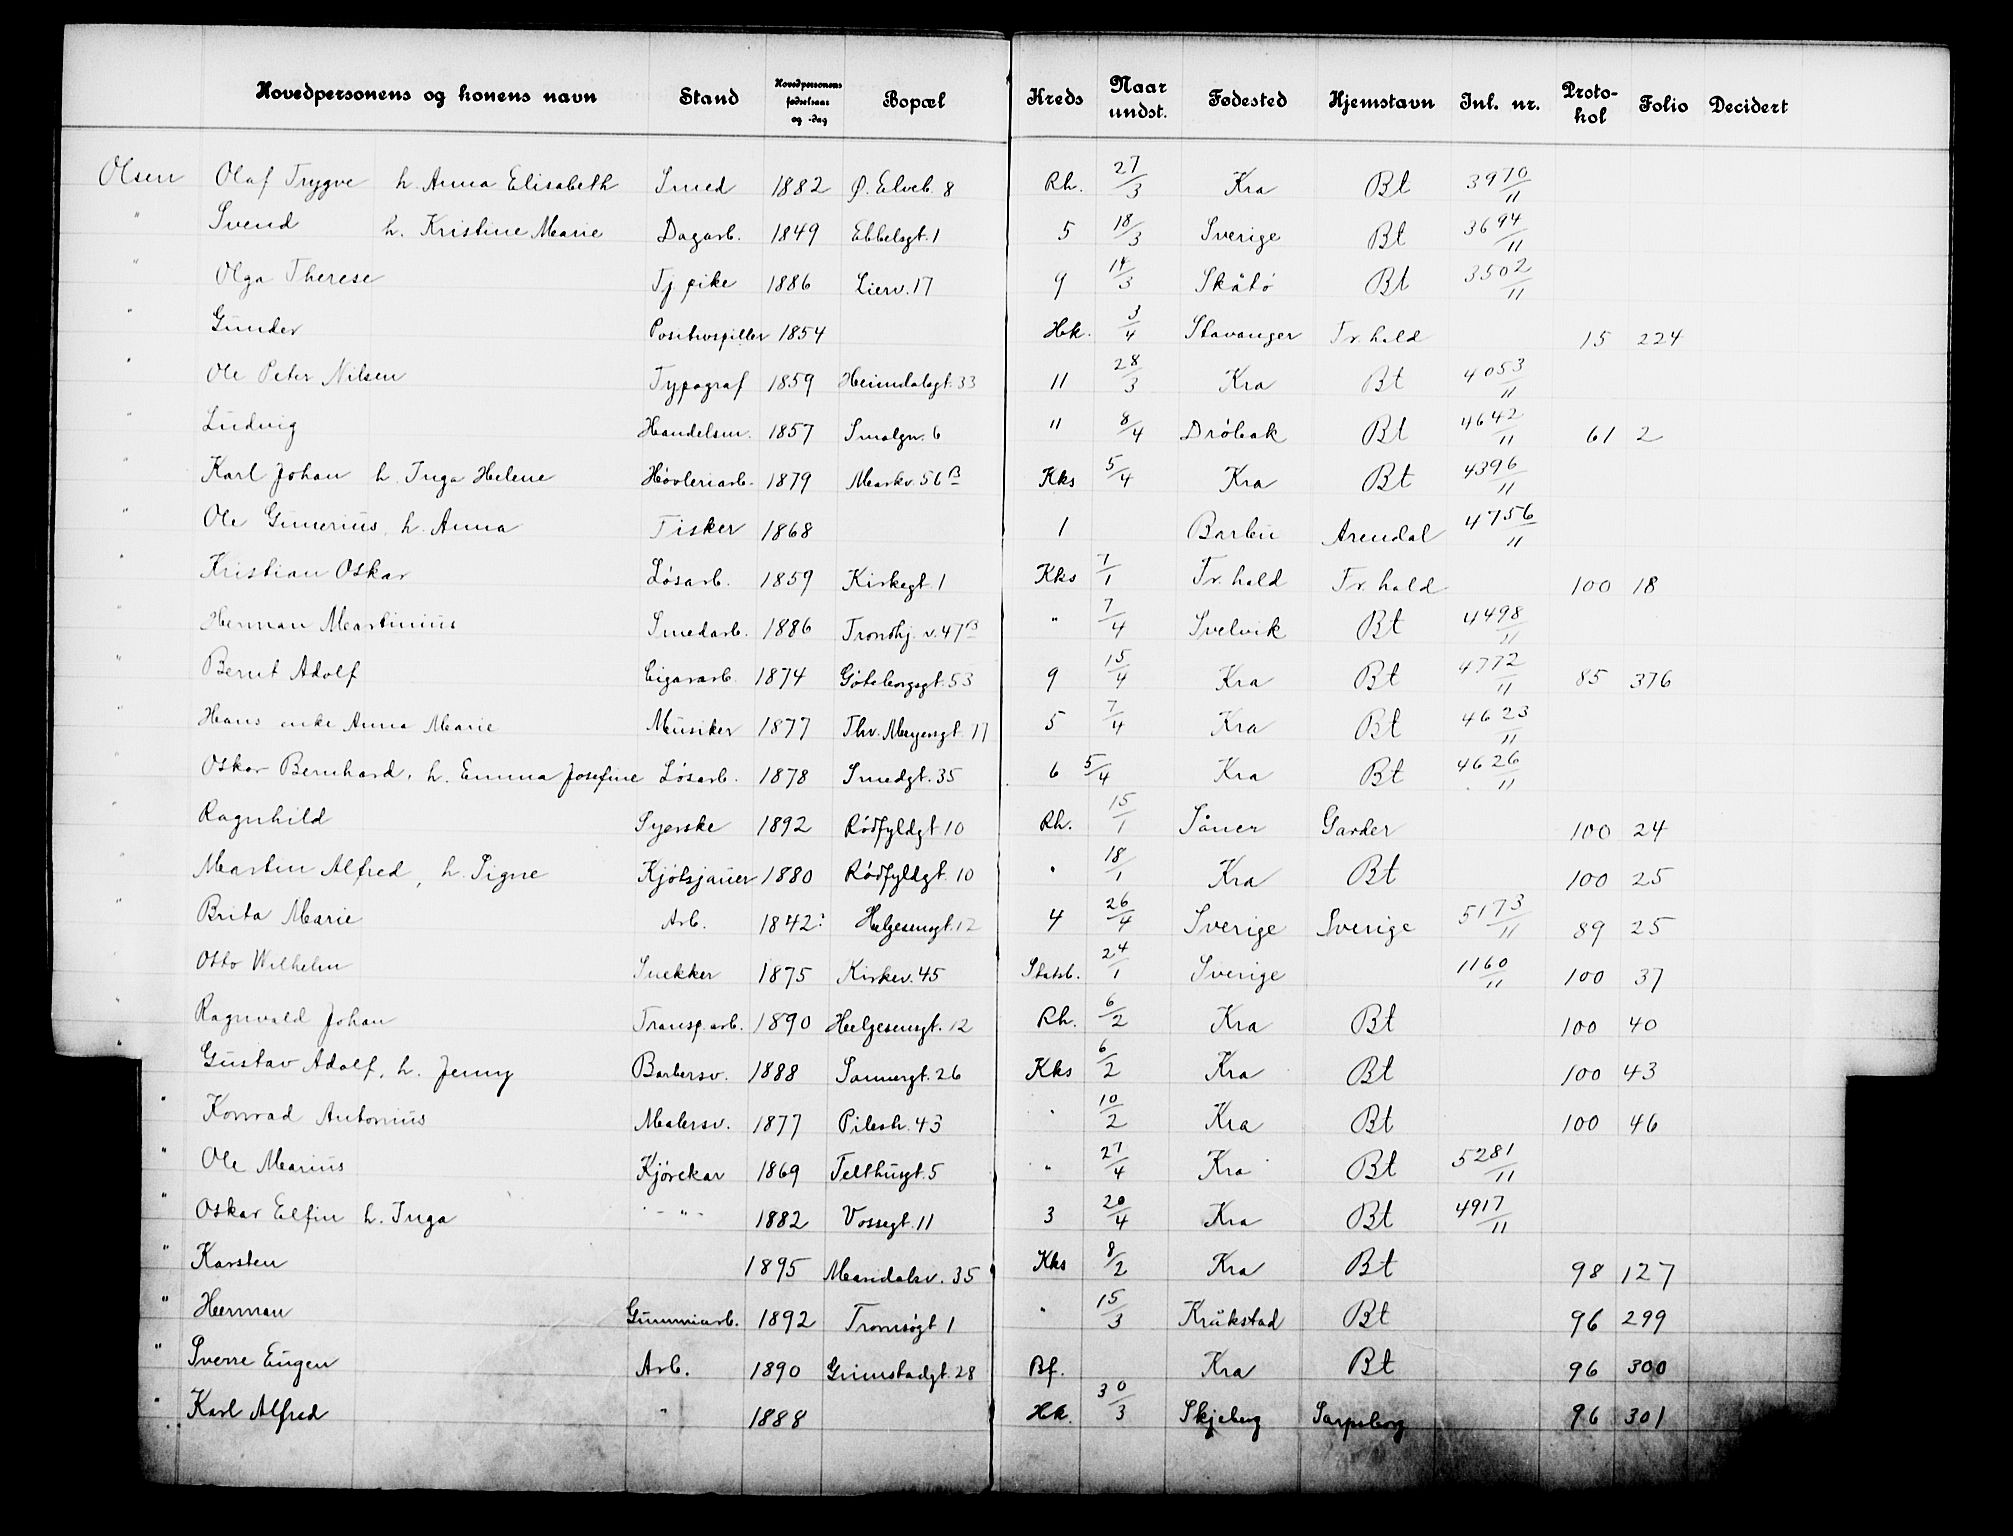 Hovedpersonens og konens navn Stand Hovedpersonens fødselsaar og -dag Bopæl Kreds Naar undst. Fødested Hjemstavn Inl. nr. Protokol Folio Decidert
Olsen Olaf Trygve h. Anna Elisabeth Smed 1882 Ø. Elveb. 8 Rh. 27/3 Kra Bt 3970/11
" Svend h. Kristine Marie Dagarb. 1849 Ebbelsgt. 1 5 18/3 Sverige Bt 3694/11
" Olga Therese Tj. pike 1886 Lierv. 17 9 14/3 Skåtö Bt 3502/11
" Gunder Positivspiller 1854 Hk. 3/4 Stavanger Fr. hald 15 224
" Ole Peter Nilsen Typograf 1859 Heimdalsgt. 33 11 28/3 Kra Bt 4053/11
" Ludvig Handelsm. 1857 Smalgn. 6 " 8/4 Dröbak Bt 4642/11 61 2
" Karl Johan h. Inga Helene Høvleriarb. 1879 Markv. 56 B Kks 5/4 Kra Bt 4396/11
" Ole Gunerius, h. Anna Fisker 1868 1 Barbu Arendal 4756/11
" Kristian Oskar Løsarb. 1859 Kirkegt. 1 Kks 7/1 Fr. hald Fr. hald 100 18
" Herman Martinius Smedarb. 1886 Trondhj. v. 47 B " 7/4 Svelvik Bt 4498/11
" Bernt Adolf Cigararb. 1874 Göteborggt. 53 9 15/4 Kra Bt 4772/11 85 376
" Hans enke Anna Marie Musiker 1877 Thv. Meyersgt. 77 5 7/4 Kra Bt 4623/11
Oskar Bernhard, h. Emma Josefine Løsarb. 1878 Smedgt. 35 6 5/4 Kra Bt 4626/11
" Ragnhild Syerske 1892 Rödfyldgt. 10 Rh. 15/1 Såner Garder 100 24
" Martin Alfred, h. Signe Kjölsjauer 1880 Rödfyldgt. 10 " 18/1 Kra Bt 100 25
" Brita Marie Arb. 1842 Helgesensgt. 12 4 26/4 Sverige Sverige 5173/11 89 25
" Otto Wilhelm Snekker 1875 Kirkev. 45 Statsb. 24/1 Sverige 1160/11 100 37
" Ragnvald Johan Transp. arb. 1890 Helgesensgt. 12 Rh. 6/2 Kra Bt 100 40
" Gustav Adolf, h. Jenny Barbersv. 1888 Sannergt. 26 Kks 6/2 Kra Bt 100 43
" Konrad Antonius Malersv. 1877 Pilestr. 43 " 10/2 Kra Bt 100 46
" Ole Marius Kjörekar 1869 Telthusgt. 5 " 27/4 Kra Bt 5281/11
" Oskar Elfin h. Inga - " - 1882 Vossegt. 11 3 20/4 Kra Bt 4917/11
" Karsten 1895 Maridalsv. 35 Kks 8/2 Kra Bt 98 127
" Herman Gummiarb. 1892 Tromsøgt 1 " 15/3 Kråkstad Bt 96 299
" Sverre Eugen Arb. 1890 Grimstadgt. 28 Bf. Kra Bt 96 300
" Karl Alfred " 1888 Hk. 30/3 Skjeberg Sarpsborg 96 301